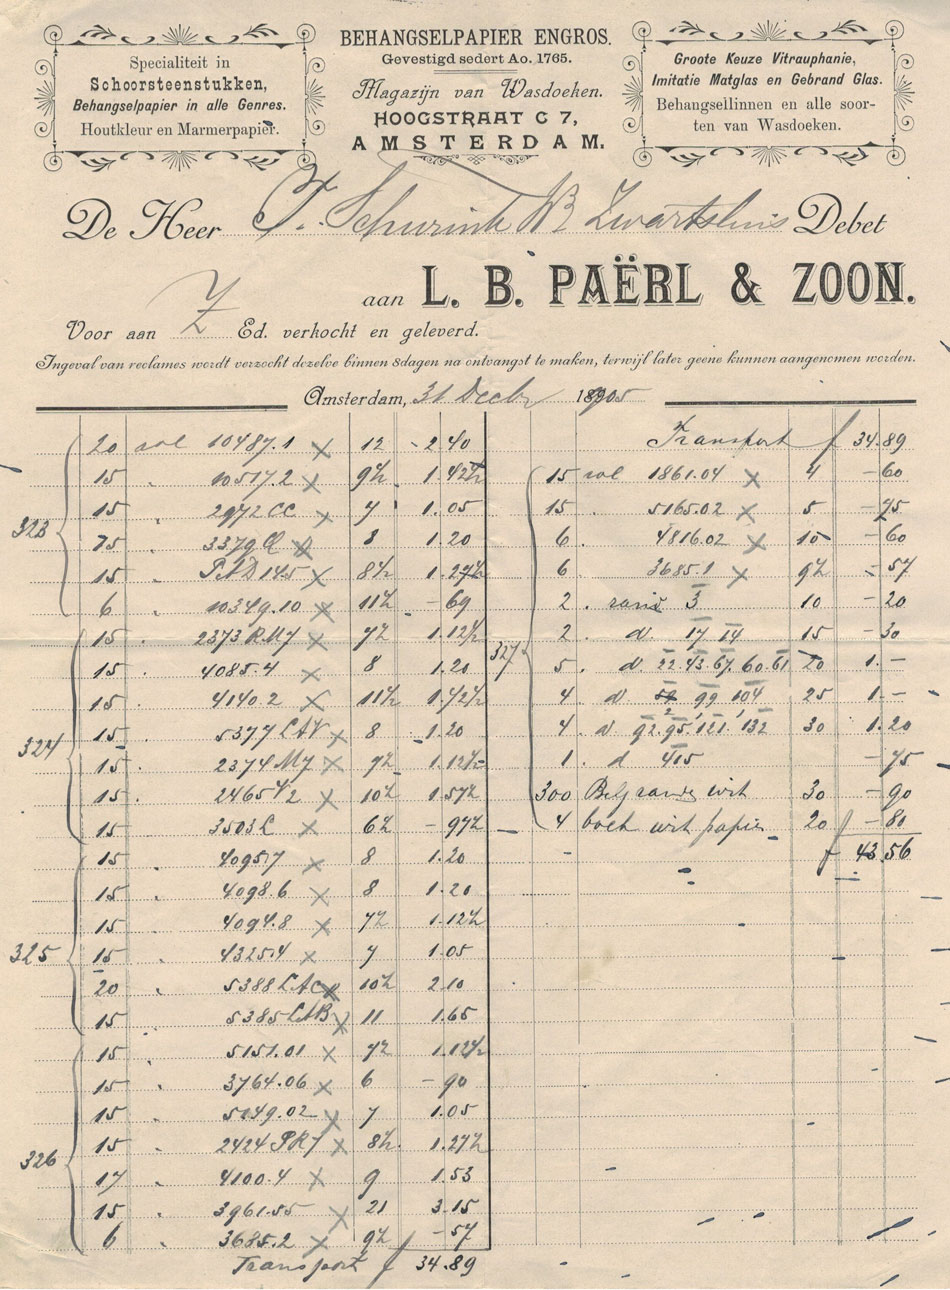 Specialiteit in
Schoorsteenstukken,
Behangselpapier in alle Genres.
Houtkleur en Marmerpapier.
BEHANGSELPAPIER ENGROS.
Gevestigd sedert Ao. 1765.
Magazijn van Wasdoeken.
HOOGSTRAAT C 7,
AMSTERDAM.
Groote Keuze Vitrauphanie,
Imitatie Matglas en Gebrand Glas.
Behangsellinnen en alle soor-
ten van Wasdoeken.
De Heer Schurink Zwartsluis Debet
aan L. B. PAËRL & ZOON.
Voor aan Z Ed. verkocht en geleverd.
Ingeval van reclames wordt verzocht dezelve binnen 8 dagen na ontvangst te maken, terwijl later geene kunnen aangenomen worden.
Amsterdam, 31 Decbr 1905
323
20 rol 10487.1 X 12 - 2.40
15 " 10517.2 X 9½ 1.42½
15 " 2972 CC X 7 1.05
15 " 3379 Q X 8 1.20
15 " PND 145 X 8½ 1.27½
6 " 10349.10 X 11½ - 69
324
15 " 2373 RM7 X 7½ 1.12½
15 " 4085.4 X 8 1.20
15 " 4140.2 X 11½ 1.72½
15 " 5377 CAV X 8 1.20
15 " 2374 M7 X 7½ 1.12½
15 " 2465 V2 X 10½ 1.57½
15 3503 C X 6½ - 97½
325
15 " 4095.7 X 8 1.20
15 4098.6 X 8 1.20
15 4094.8 X 7½ 1.12½
15 " 4325.4 X 7 1.05
20 " 5388 CAC X 10½ 2.10
15 5385 CAB X 11 1.65
326
15 " 5151.01 X 7½ 1.12½
15 " 3764.06 X 6 - 90
15 " 5249.02 X 7 1.05
15 " 2424 PR7 X 8½ 1.27½
17 " 4100.4 X 9 1.53
15 " 3961.55 X 21 3.15
6 " 3685.2 X 9½ - 57
Transport f 34.89
Transport f 34.89
327
15 rol 1861.04 X 4 - 60
15 " 5165.02 X 5 - 75
6 " 4816.02 X 10 - 60
6 " 3685.1 X 9½ - 57
2 " rand 3 10 - 20
2 " d 17 14 15 - 30
5 " d 22.43.67.60.61 20 1.-
4 " d 99 104 25 1.-
4 " d 92.95.121.132 30 1.20
1 " d 415 - 75
300 Belgrande wit 30 - 90
4 boek wit papier 20 f - 80
f 43.56